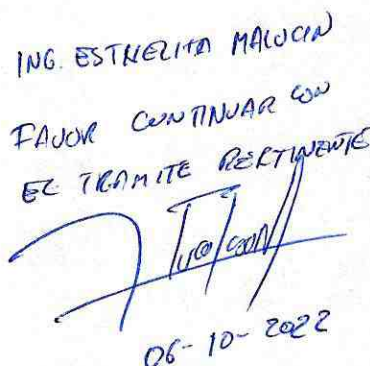 ING. ESTHELITA MALUCIN
FAVOR CONTINUAR CON
EL TRAMITE PERTINENTE
06-10-2022